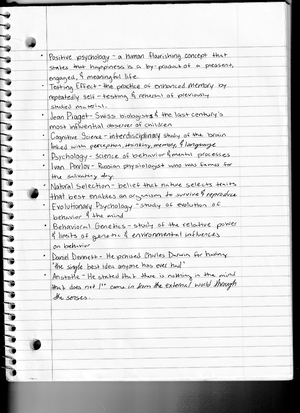 • Positive psychology - a human flourishing concept that
states that happiness is a by-product of a pleasant,
engaged, & meaningful life.
• Testing Effect - the practice of enhanced memory by
repeatedly self-testing & rehearsal of previously
studied material.
• Jean Piaget - Swiss biologist & the last century's
most influential observer of children
• Cognitive Science - interdisciplinary study of the brain
linked with perception, thinking, memory, & language
• Psychology - science of behavior & mental processes
• Ivan Pavlov - Russian physiologist who was famous for
the salivatory dog.
• Natural Selection - belief that nature selects traits
that best enables an organism to survive & reproduce
• Evolutionary Psychology - study of evolution of
behavior & the mind
• Behavioral Genetics - study of the relative power
& limits of genetic & environmental influences
on behavior
• Daniel Dennett - He praised Charles Darwin for having
"the single best idea anyone has ever had"
• Aristotle - He stated that there is nothing in the mind
that does not 1st come in from the external world through
the senses.